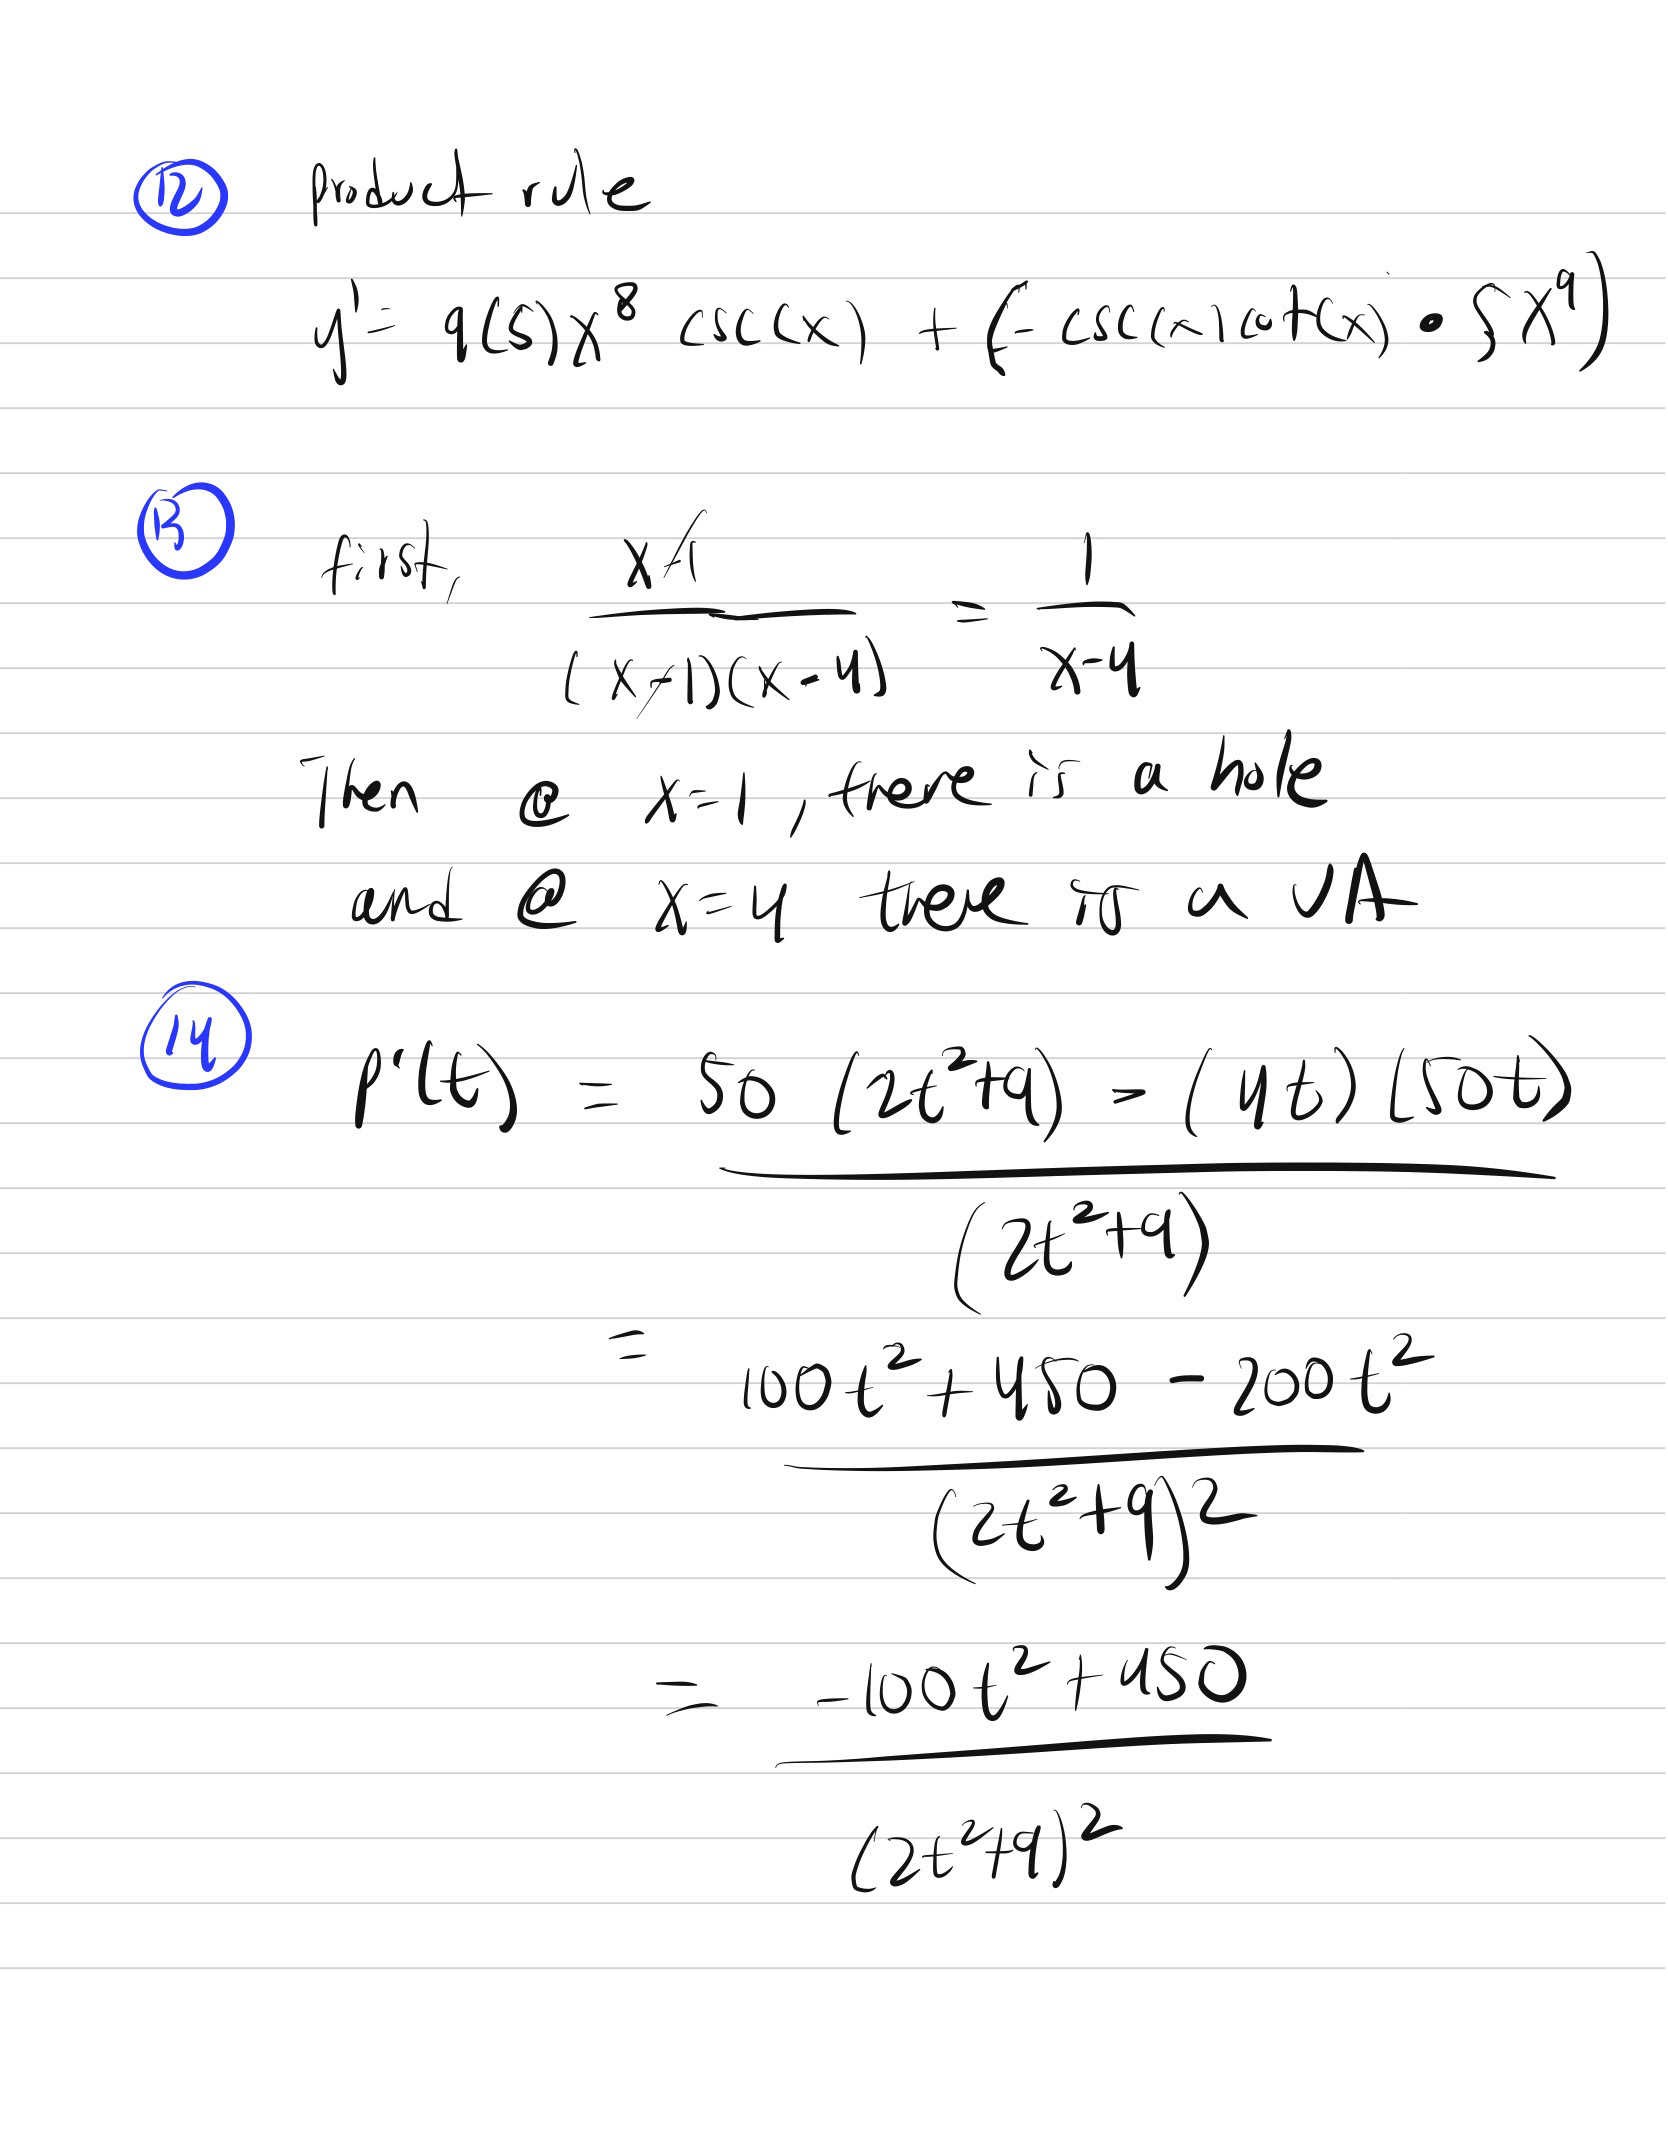 12 product rule
y' = 9(5)x⁸ csc(x) + (- csc(x)cot(x) • 5x⁹)
13 first, x-1 / (x-1)(x-4) = 1 / x-4
Then @ x=1, there is a hole
and @ x=4 there is a VA
14 P'(t) = 50 (2t²+9) - (4t)(50t) / (2t²+9)
= 100t² + 450 - 200t² / (2t²+9)²
= -100t² + 450 / (2t²+9)²